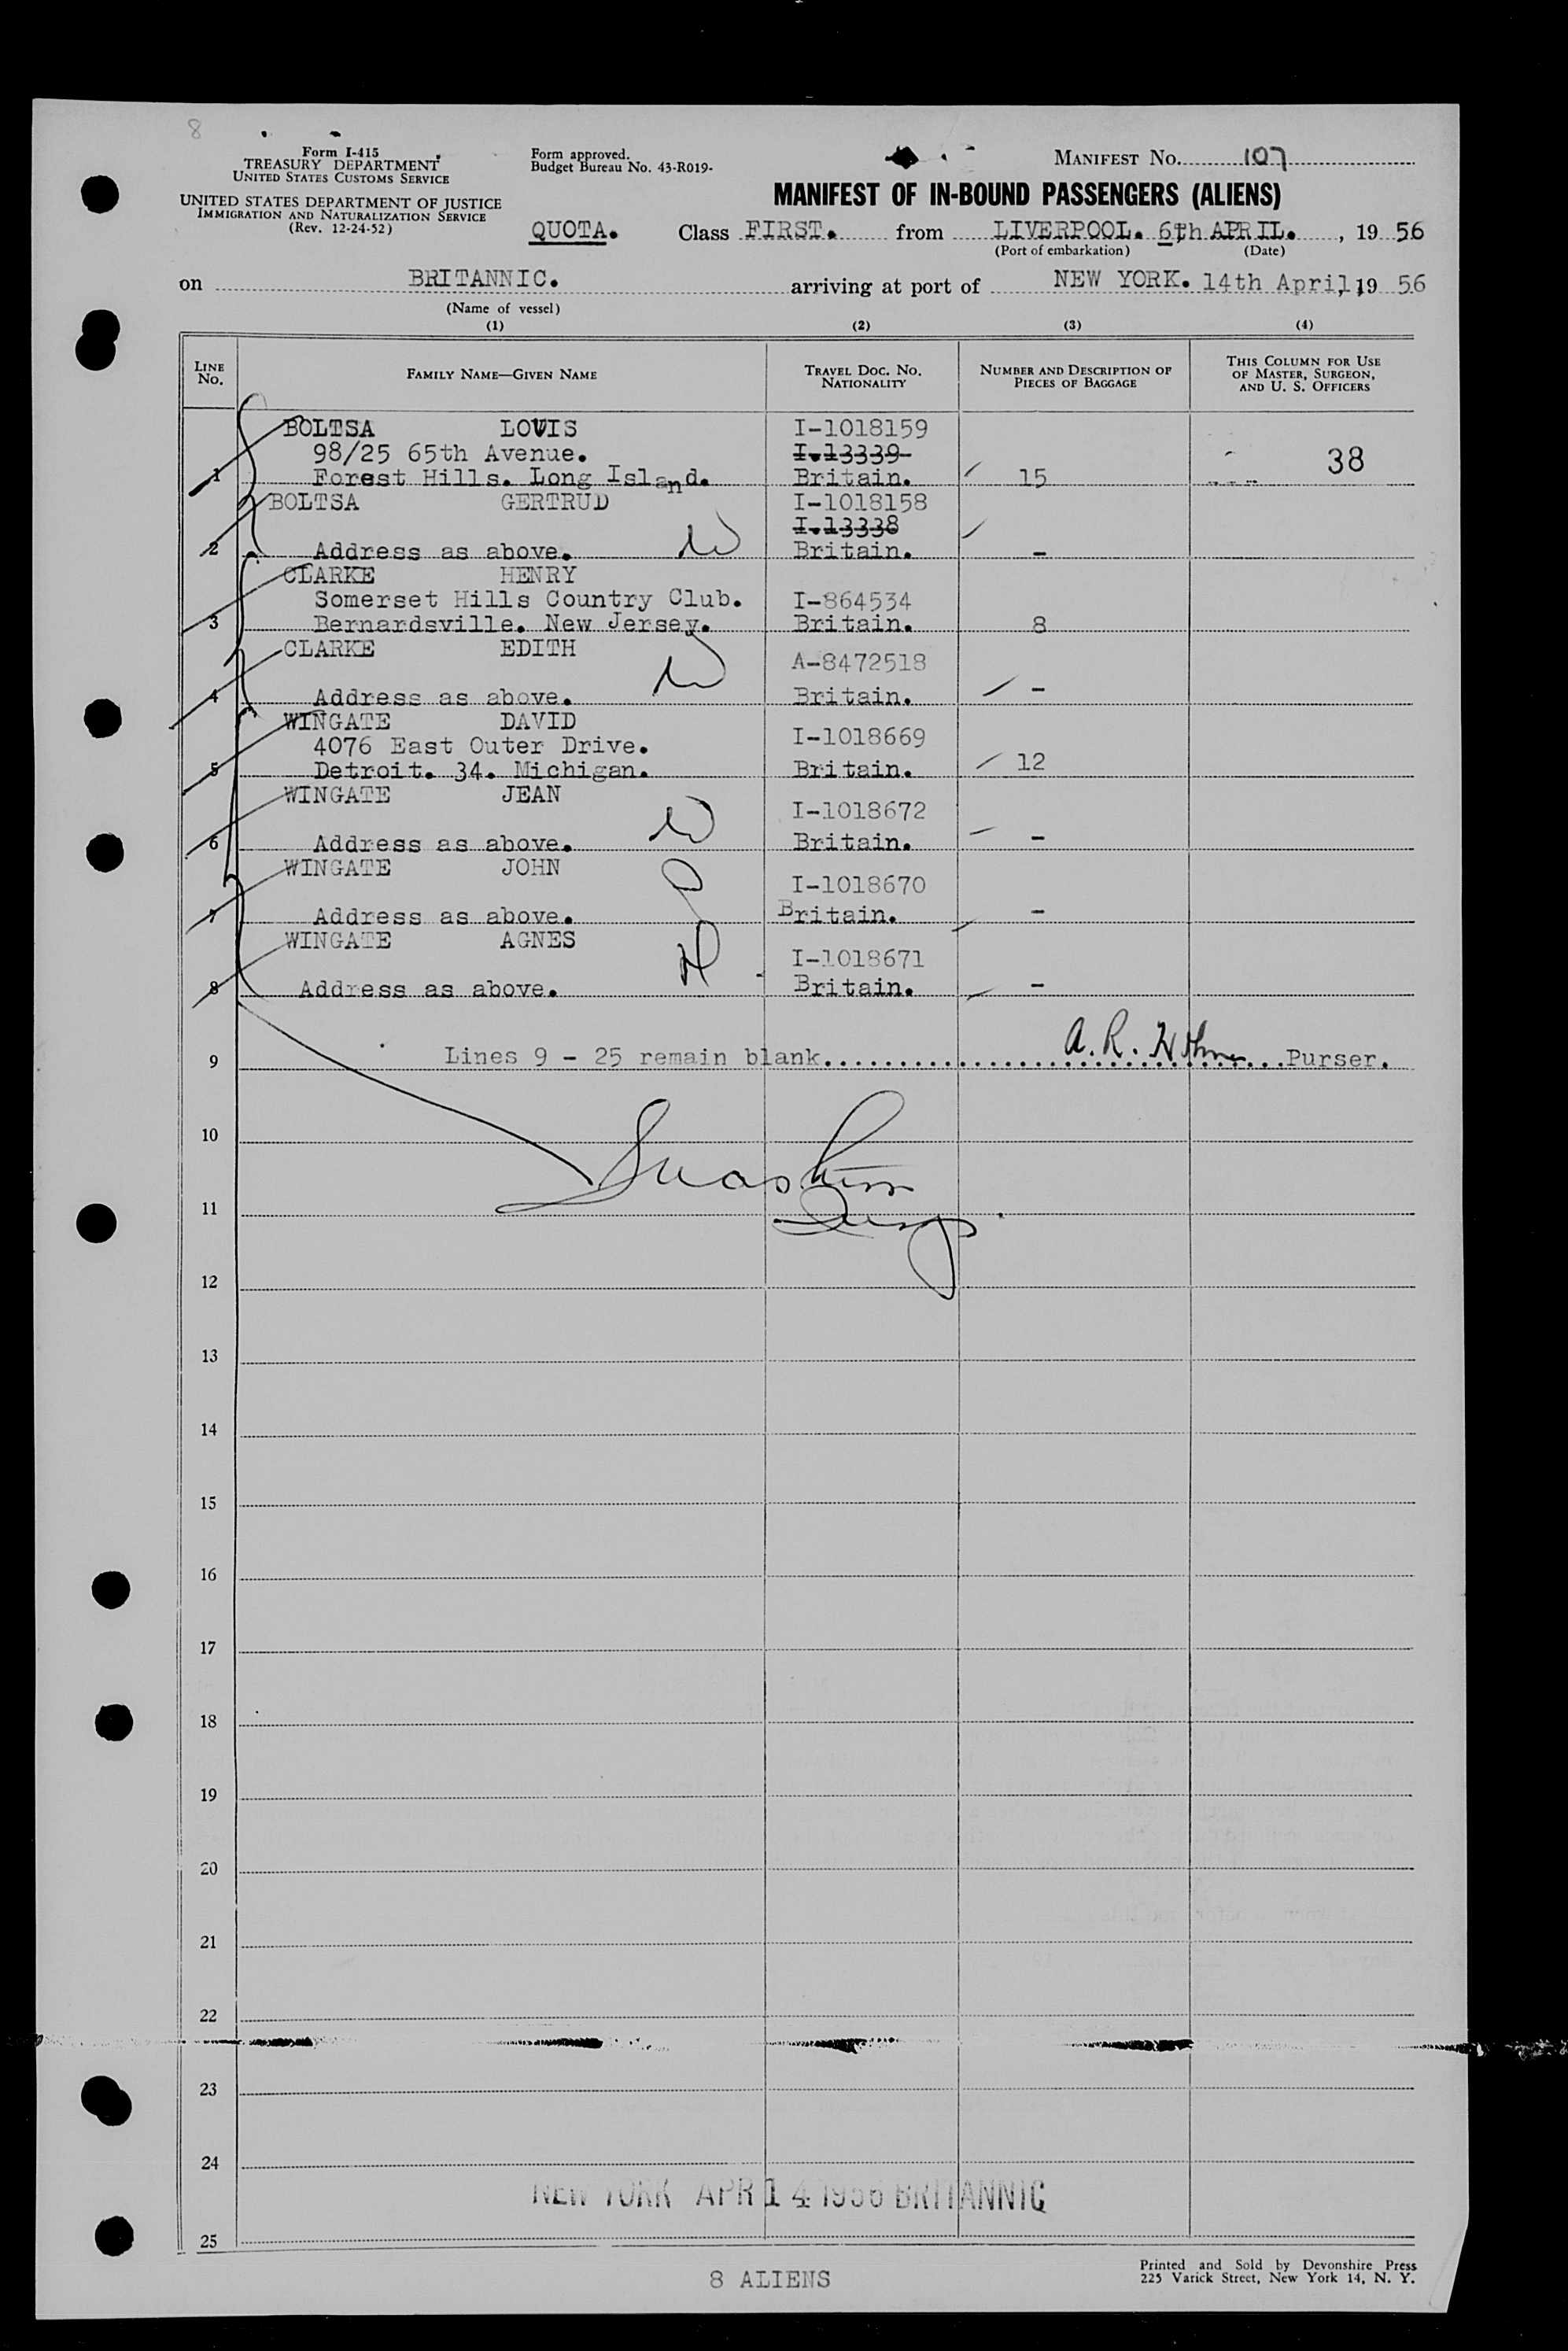 8
Form I-415
TREASURY DEPARTMENT
UNITED STATES CUSTOMS SERVICE
UNITED STATES DEPARTMENT OF JUSTICE
IMMIGRATION AND NATURALIZATION SERVICE
(Rev. 12-24-52)
Form approved.
Budget Bureau No. 43-R019-
MANIFEST No. 107
MANIFEST OF IN-BOUND PASSENGERS (ALIENS)
QUOTA. Class FIRST. from LIVERPOOL. 6th APRIL. , 19 56
(Port of embarkation) (Date)
on BRITANNIC. arriving at port of NEW YORK. 14th April, 19 56
(Name of vessel)
(1) (2) (3) (4)
LINE No. FAMILY NAME—GIVEN NAME TRAVEL DOC. NO. NATIONALITY NUMBER AND DESCRIPTION OF PIECES OF BAGGAGE THIS COLUMN FOR USE OF MASTER, SURGEON, AND U. S. OFFICERS
BOLTSA LOUIS I-1018159
98/25 65th Avenue. I.13339 38
1 Forest Hills. Long Island. Britain. 15
BOLTSA GERTRUD I-1018158
I.13338
2 Address as above. Britain. -
CLARKE HENRY
Somerset Hills Country Club. I-864534
3 Bernardsville. New Jersey. Britain. 8
CLARKE EDITH A-8472518
4 Address as above. Britain. -
WINGATE DAVID
4076 East Outer Drive. I-1018669
5 Detroit. 34. Michigan. Britain. 12
WINGATE JEAN I-1018672
6 Address as above. Britain. -
WINGATE JOHN I-1018670
7 Address as above. Britain. -
WINGATE AGNES I-1018671
8 Address as above. Britain. -
9 Lines 9 - 25 remain blank. A. R. Purser.
10
11
12
13
14
15
16
17
18
19
20
21
22
23
24
NEW YORK APR 14 1956 BRITANNIC
25
8 ALIENS
Printed and Sold by Devonshire Press
225 Varick Street, New York 14, N. Y.